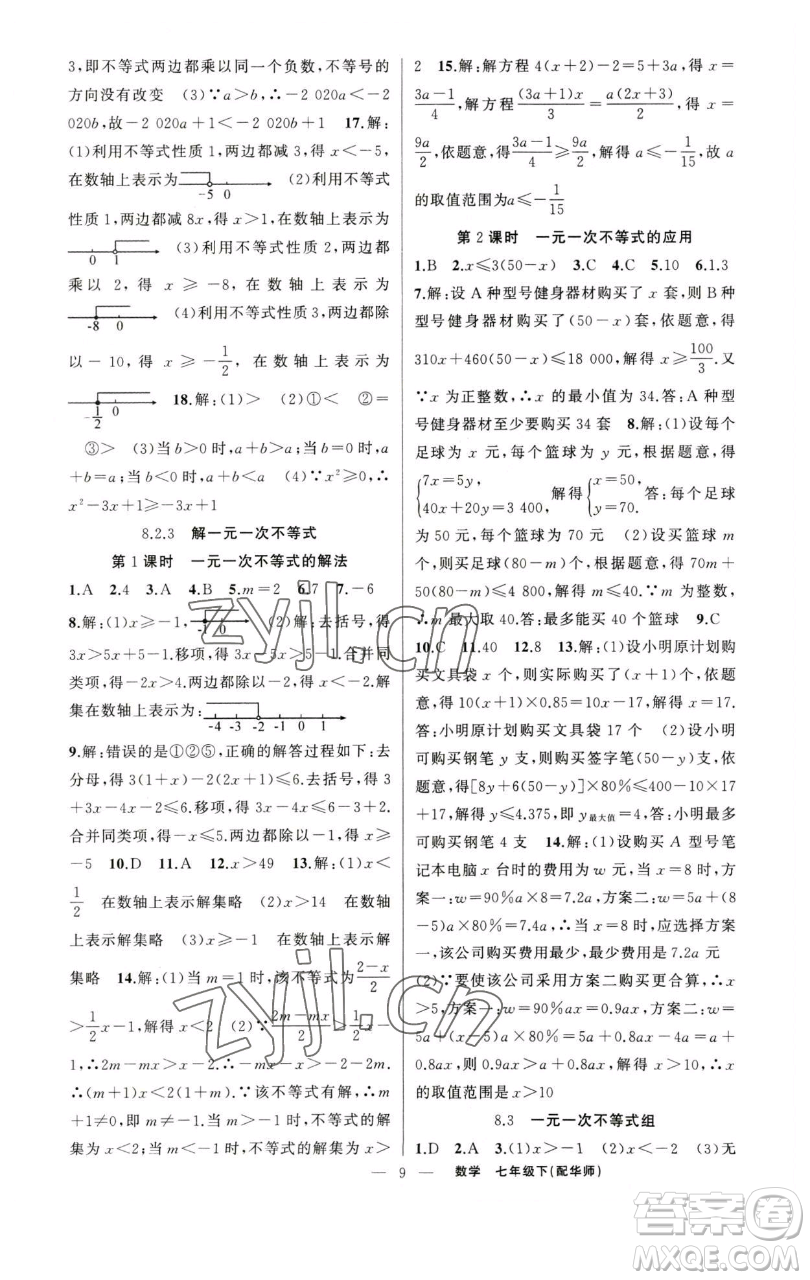 3,即不等式两边都乘以同一个负数,不等号的
方向没有改变 (3)∵a>b,∴-2 020a<-2
020b,故-2 020a+1<-2 020b+1 17.解:
(1)利用不等式性质1,两边都减3,得 x<-5,
在数轴上表示为 -5 0 (2)利用不等式
性质1,两边都减8x,得 x>1,在数轴上表示为
0 1 (3)利用不等式性质2,两边都
乘以2,得 x≥-8,在数轴上表示为
-8 0 (4)利用不等式性质3,两边都除
以-10,得 x≥-1/2,在数轴上表示为
-1/2 0 18.解:(1)> (2)①< ②=
③> (3)当 b>0时,a+b>a;当 b=0时,
a+b=a;当 b<0时,a+b<a (4)∵x²≥0,∴
x²-3x+1≥-3x+1
8.2.3 解一元一次不等式
第1课时 一元一次不等式的解法
1.A 2.4 3.A 4.B 5.m=2 6.7 7.-6
8.解:(1)x≥-1, -1 0 (2)解:去括号,得
3x>5x+5-1.移项,得3x-5x>5-1.合并同
类项,得-2x>4.两边都除以-2,得 x<-2.解
集在数轴上表示为: -4 -3 -2 -1 0 1
9.解:错误的是①②⑤,正确的解答过程如下:去
分母,得3(1+x)-2(2x+1)≤6.去括号,得3
+3x-4x-2≤6.移项,得3x-4x≤6-3+2.
合并同类项,得-x≤5.两边都除以-1,得 x≥
-5 10.D 11.A 12.x>49 13.解:(1)x<
1/2 在数轴上表示解集略 (2)x>14 在数轴
上表示解集略 (3)x≥-1 在数轴上表示解
集略 14.解:(1)当 m=1时,该不等式(2-x)/2
>1/2x-1,解得 x<2 (2)∵(2m-mx)/2>1/2x-
1,∴2m-mx>x-2.∴-mx-x>-2-2m.
∴(m+1)x<2(1+m).∵该不等式有解,∴m
+1≠0,即 m≠-1.当 m>-1时,不等式的解
集为 x<2;当 m<-1时,不等式的解集为 x>
2 15.解:解方程4(x+2)-2=5+3a,得 x=
(3a-1)/4,解方程 (3a+1)x/3=a(2x+3)/2,得 x=
9a/2,依题意,得 (3a-1)/4≥9a/2,解得 a≤-1/15,故 a
的取值范围为a≤-1/15
第2课时 一元一次不等式的应用
1.B 2.x≤3(50-x) 3.C 4.C 5.10 6.1.3
7.解:设A种型号健身器材购买了 x 套,则B种
型号健身器材购买了(50-x)套,依题意,得
310x+460(50-x)≤18 000,解得 x≥100/3.又
∵x 为正整数,∴x 的最小值为34.答:A种型
号健身器材至少要购买34套 8.解:(1)设每个
足球为 x 元,每个篮球为 y 元,根据题意,得
{7x=5y, 40x+20y=3 400, 解得{x=50, y=70. 答:每个足球
为50元,每个篮球为70元 (2)设买篮球 m
个,则买足球(80-m)个,根据题意,得70m+
50(80-m)≤4 800,解得 m≤40.∵m 为整数,
∴m 最大取40.答:最多能买40个篮球 9.C
10.C 11.40 12.8 13.解:(1)设小明原计划购
买文具袋 x 个,则实际购买了(x+1)个,依题意,
得 10(x+1)×0.85=10x-17,解得 x=17.
答:小明原计划购买文具袋17个 (2)设小明
可购买钢笔 y 支,则购买签字笔(50-y)支,依
题意,得[8y+6(50-y)]×80%≤400-10×17
+17,解得 y≤4.375,即 y最大值=4,答:小明最多
可购买钢笔4支 14.解:(1)设购买 A 型号笔
记本电脑 x 台时的费用为 w 元,当 x=8时,方
案一:w=90%a×8=7.2a,方案二:w=5a+(8
-5)a×80%=7.4a,∴当 x=8时,应选择方案
一,该公司购买费用最少,最少费用是7.2a元
(2)∵要使该公司采用方案二购买更合算,∴x
>5,方案一:w=90%ax=0.9ax,方案二:w=
5a+(x-5)a×80%=5a+0.8ax-4a=a+
0.8ax,则0.9ax>a+0.8ax,解得 x>10,∴x
的取值范围是 x>10
8.3 一元一次不等式组
1.D 2.A 3.(1)x>-1 (2)x<-2 (3)无
— 9 — 数学 七年级下(配华师)
zyjl.cn
zyjl.cn
答案圈
MXQE.COM